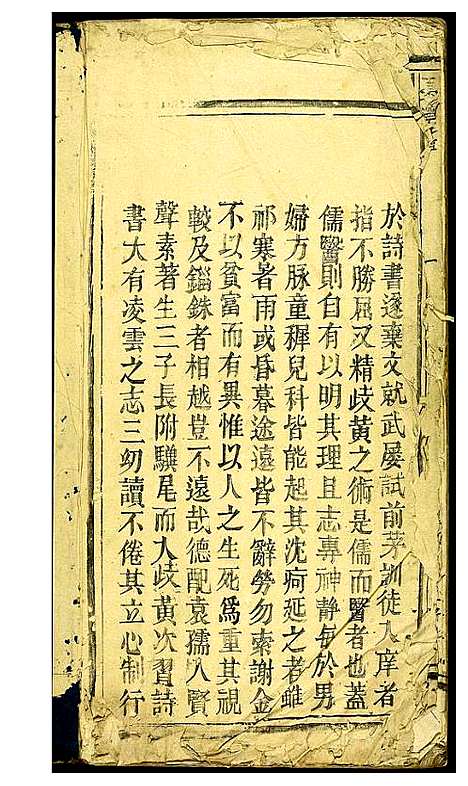 於詩書遂棄文就武屡試前茅訓徒入庠者
指不勝屈又精歧黄之術是儒而醫者也蓋
儒醫則自有以明其理且志專神静每於男
婦方脉童穉兒科皆能起其沈疴延之者雖
祁寒暑雨或昏暮途遠皆不辭勞勿索謝金
不以貧富而有異惟以人之生死為重其視
較及錙銖者相越豈不遠哉德配袁孺人賢
聲素著生三子長附驥尾而入歧黄次習詩
書大有凌雲之志三幼讀不倦其立心制行